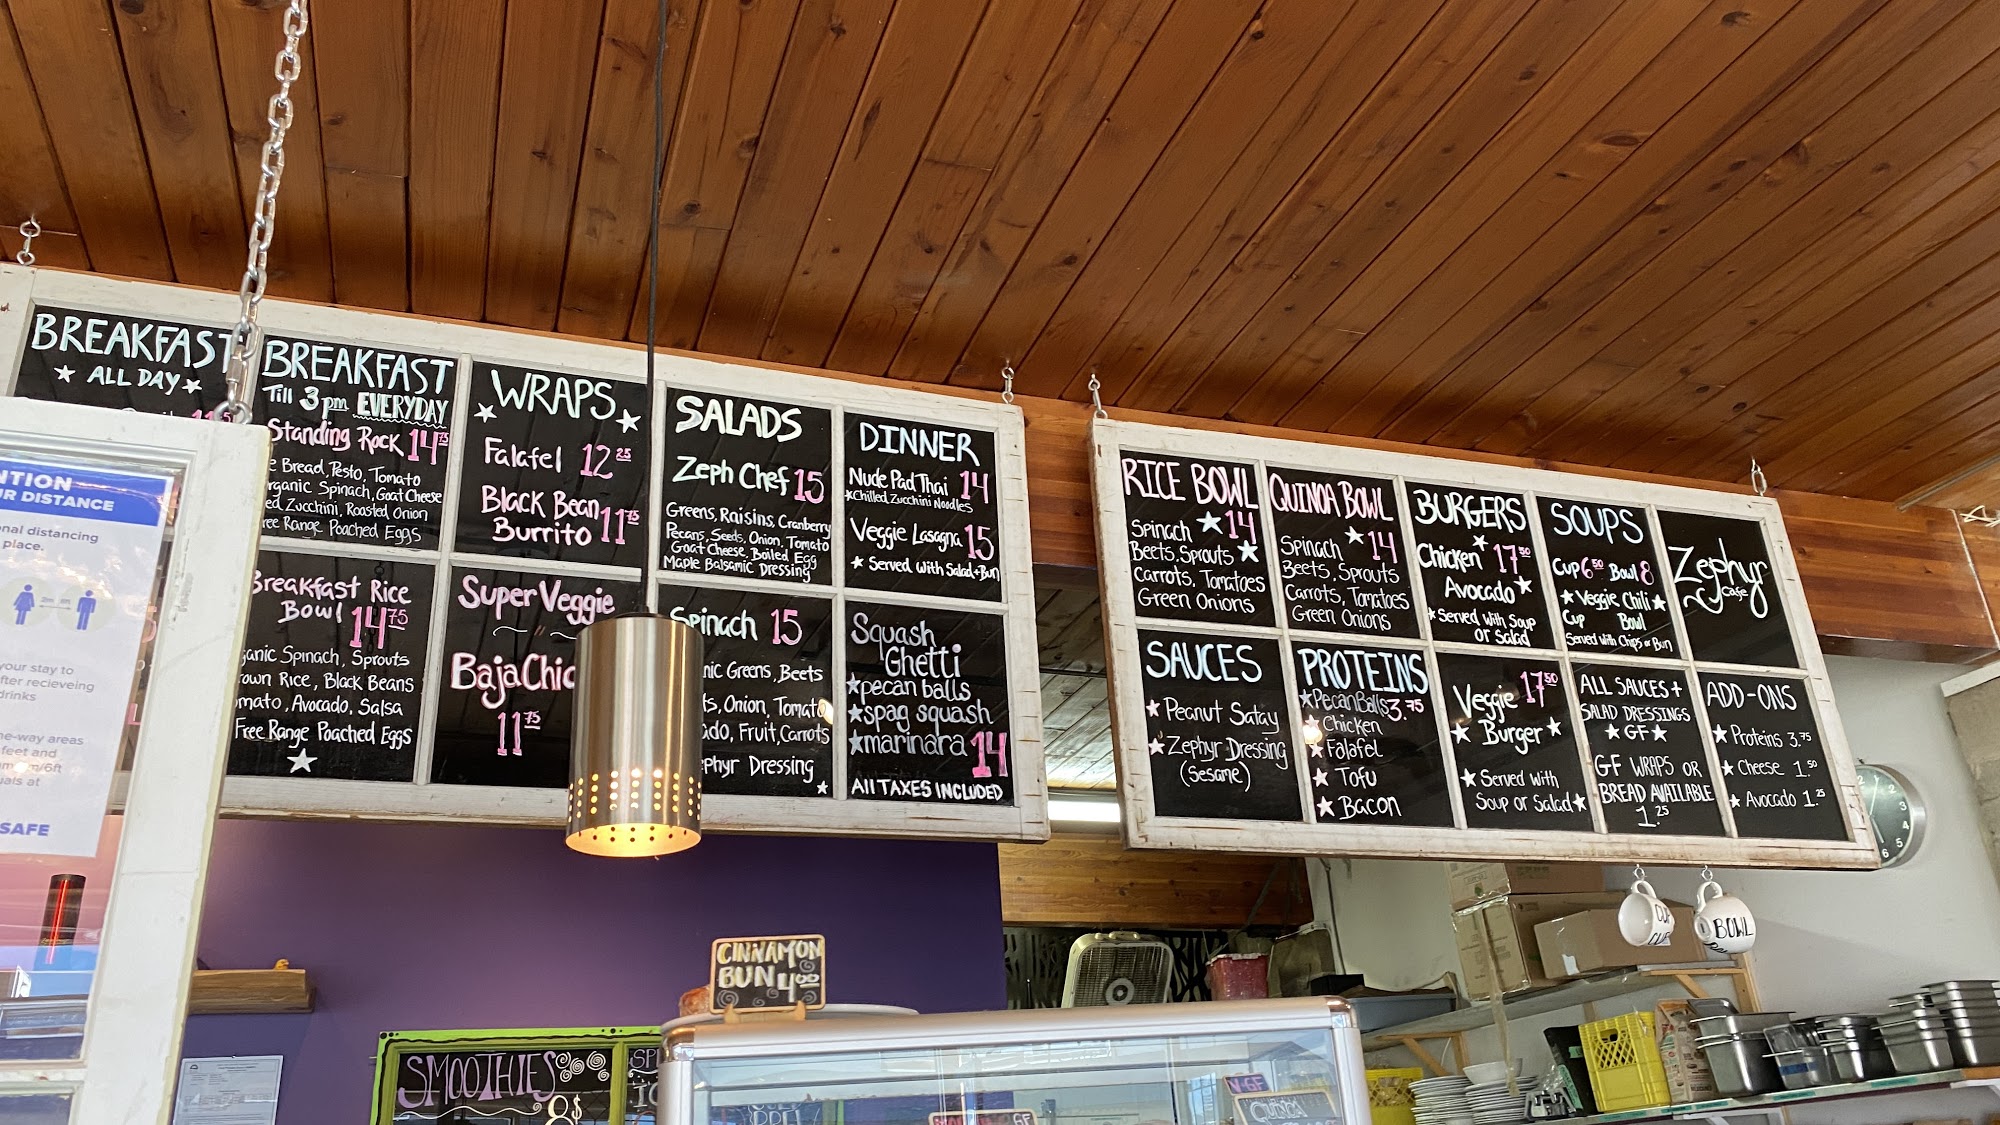 BREAKFAST
ALL DAY
BREAKFAST
Till 3pm EVERYDAY
Standing Rock 14 75
Bread, Pesto, Tomato
Spinach, Goat Cheese
Zucchini, Roasted Onion
Range Poached Eggs
Breakfast Rice
Bowl 14 75
Spinach, Sprouts
Rice, Black Beans
Avocado, Salsa
Free Range Poached Eggs
WRAPS
Falafel 12 25
Black Bean
Burrito 11 75
Super Veggie
"
Baja Chic
11 75
SALADS
Zeph Chef 15
Greens, Raisins, Cranberry
Pecans, Seeds, Onion, Tomato
Goat Cheese, Boiled Egg
Maple Balsamic Dressing
Spinach 15
Greens, Beets
Onion, Tomato
Fruit, Carrots
Dressing
DINNER
Nude Pad Thai 14
Chilled Zucchini Noodles
Veggie Lasagna 15
Served with Salad + Bun
Squash
Ghetti
pecan balls
spag squash
marinara 14
All TAXES INCLUDED
RICE BOWL
14
Spinach
Beets, Sprouts
Carrots, Tomatoes
Green Onions
QUINOA BOWL
14
Spinach
Beets, Sprouts
Carrots, Tomatoes
Green Onions
BURGERS
Chicken 17 50
Avocado
Served with Soup
or Salad
SOUPS
Cup 6 50 Bowl 8
Veggie Chili
Cup Bowl
Served with Chips or Bun
Zephyr
cafe
SAUCES
Peanut Satay
Zephyr Dressing
(Sesame)
PROTEINS
Pecan Balls 3.75
Chicken
Falafel
Tofu
Bacon
Veggie 17 50
Burger
Served with
Soup or Salad
ALL SAUCES +
SALAD DRESSINGS
GF
GF WRAPS OR
BREAD AVAILABLE
1.25
ADD-ONS
Proteins 3.75
Cheese 1.50
Avocado 1.25
DISTANCE
distancing
place.
your stay to
recieveing
drinks
areas
feet and
SAFE
CINNAMON
BUN 4.00
SMOOTHIES
8$
BOWL